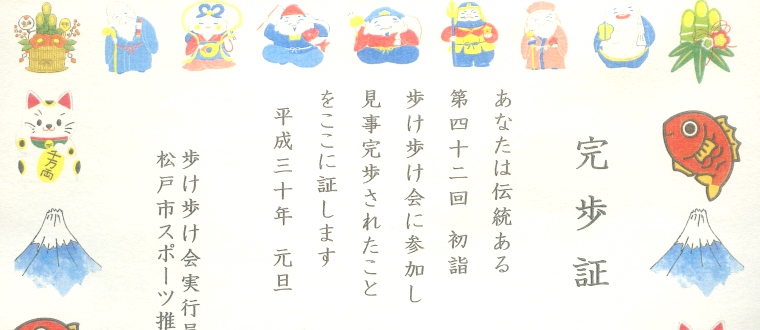 完歩証
あなたは伝統ある
第四十二回 初詣
歩け歩け会に参加し
見事完歩されたこと
をここに証します
平成三十年 元旦
歩け歩け会実行
松戸市スポーツ推
千万両